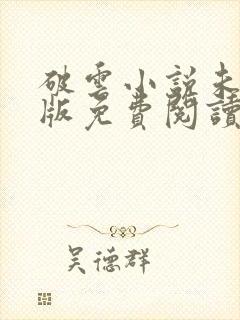 破雲小説未
版免費閱讀
吴德群